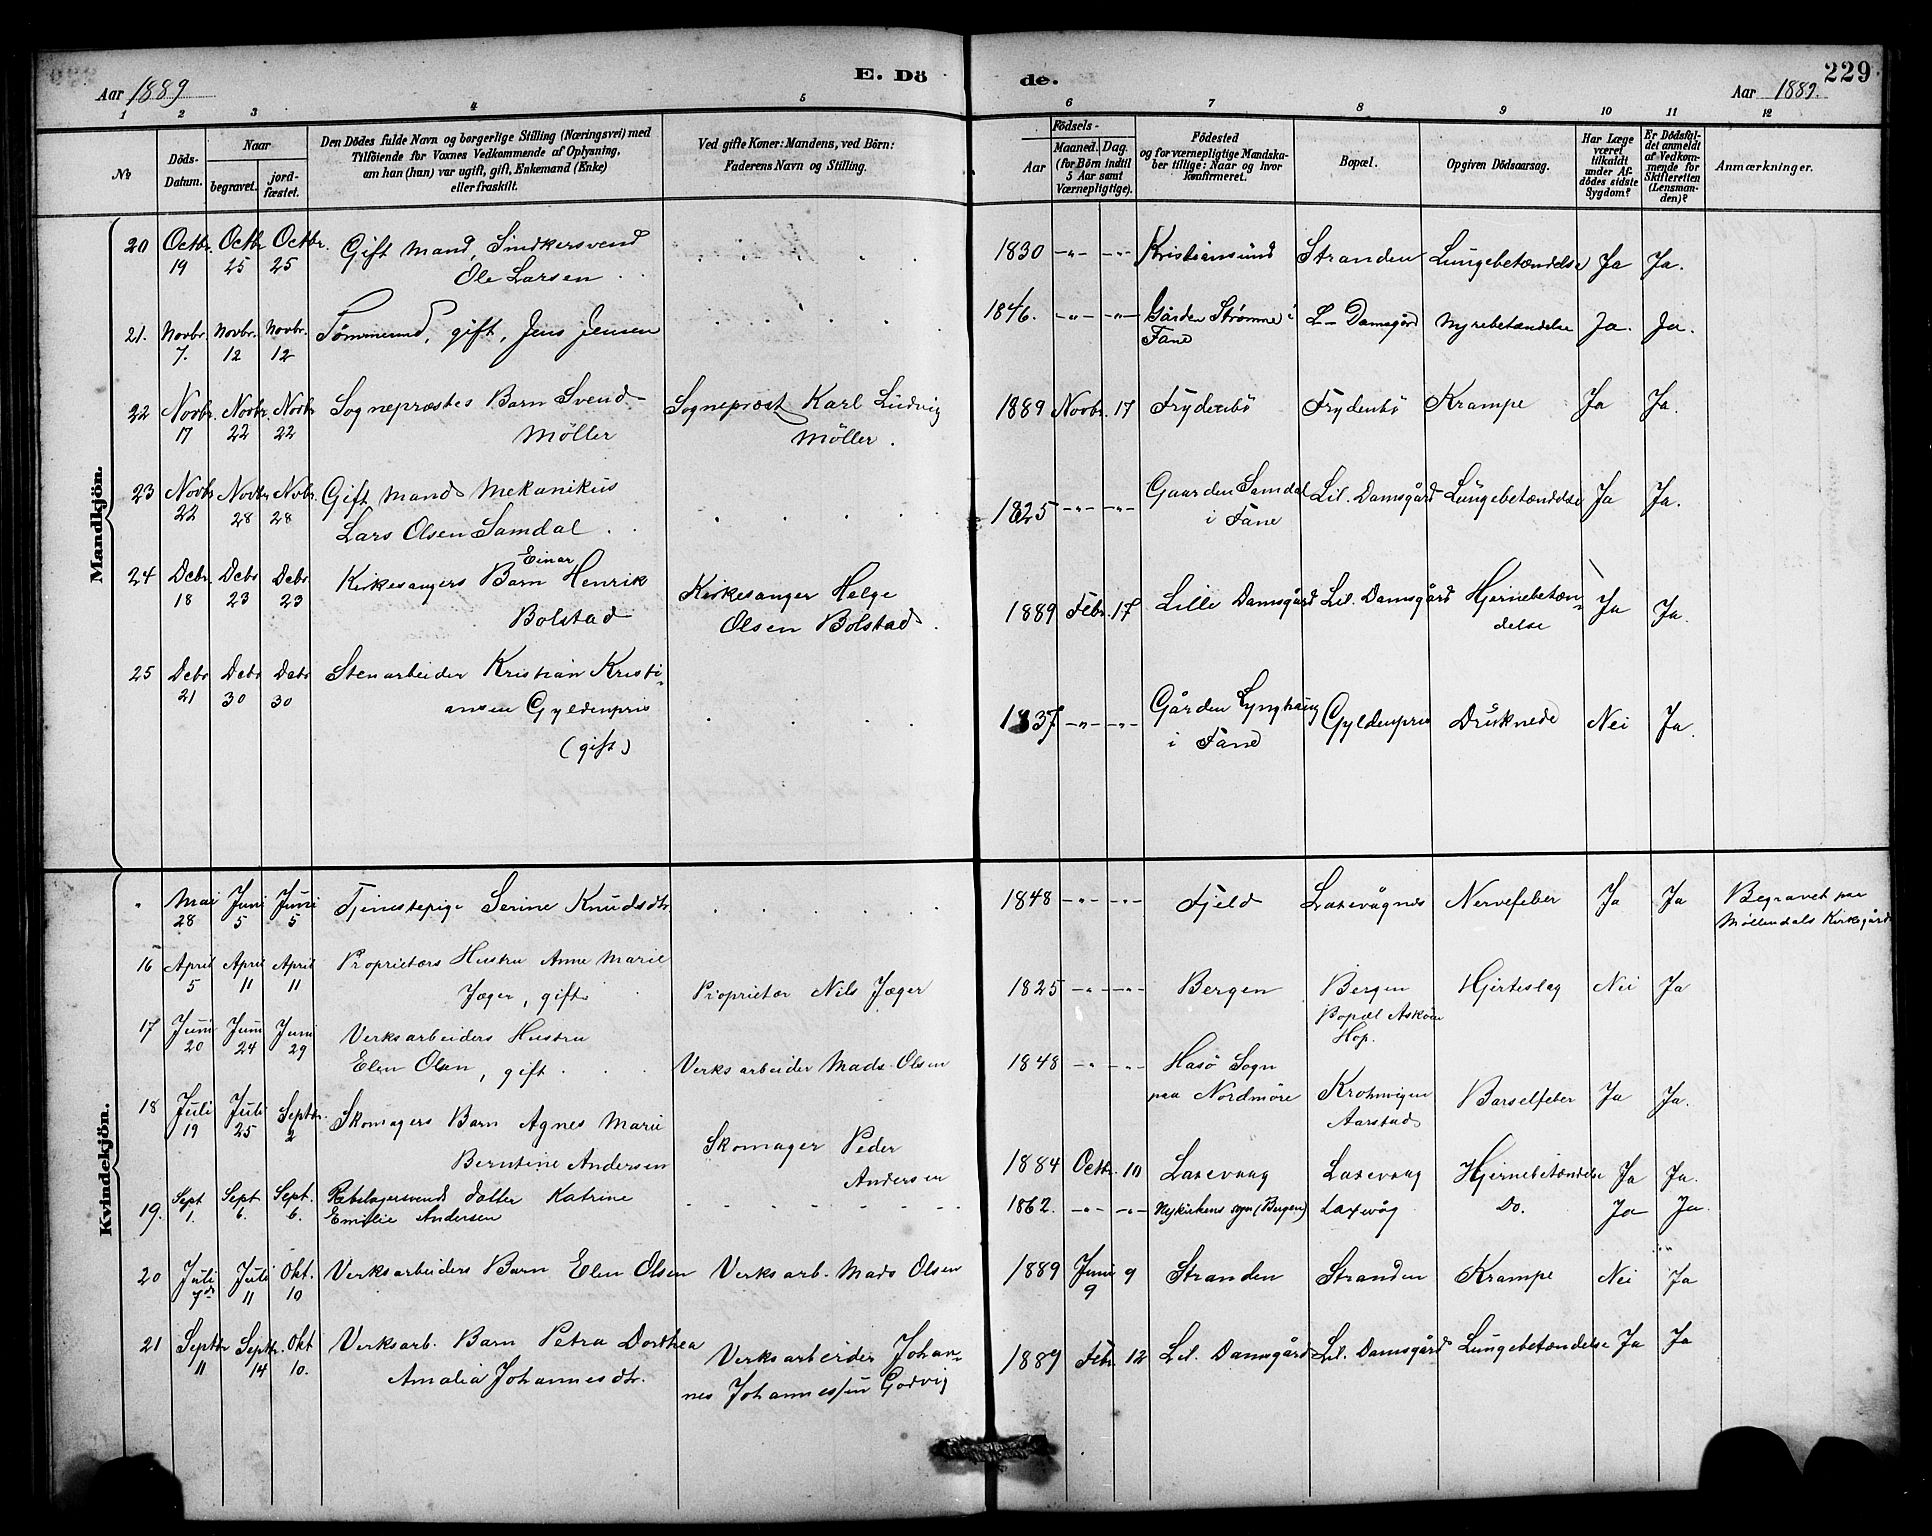 Aar 1889
E. Dö
de.
229
Aar 1889.
1 2 3 4 5 6 7 8 9 10 11 12
No
Döds-Datum.
Naar
begravet. jord-fæstet.
Den Dödes fulde Navn og borgerlige Stilling (Næringsvei) med
Tilföiende for Voxnes Vedkommende af Oplysning,
om han (hun) var ugift, gift, Enkemand (Enke)
eller fraskilt.
Ved gifte Koner: Mandens, ved Börn:
Faderens Navn og Stilling.
Födsels-
Aar
Maaned. Dag.
(for Börn indtil
5 Aar samt
Værnepligtige).
Födested
og for værnepligtige Mandska-
ber tillige: Naar og hvor
konfirmeret.
Bopæl.
Opgiven Dödsaarsag.
Har Læge
været
tilkaldt
under Af-
dödes sidste
Sygdom?
Er Dödsfal-
det anmeldt
af Vedkom-
mende for
Skifteretten
(Lensman-
den)?
Anmærkninger.
Mandkjön.
20 Octbr. 19 Octbr 25 Octbr. 25 Gift Mand, Sindkersvend
Ole Larsen
1830 -"- -"- Kristiansund Stranden Lungebetændelse Ja Ja.
21. Novbr. 7. Novbr. 12 Novbr. 12 Tømmermd, gift, Jens Jensen
1846. -"- -"- Gården Strømme i
Fane
L- Damsgård Nyrebetændelse Ja. Ja.
22 Novbr. 17 Novbr. 22 Novbr 22 Sognepræstes Barn Svend
Møller
Sognepræst Karl Ludvig
Møller.
1889 Novbr. 17 Frydenbö Frydenbö Krampe Ja Ja.
23 Novbr 22 Novbr 28 Novbr. 28 Gift Mand Mekanikus
Lars Olsen Samdal
1825 -"- -"- Gaarden Samdal
i Fane
Lil. Damsgård Lungebetændelse Ja Ja.
24 Debr. 18 Debr 23 Debr 23 Kirkesangers Barn Einar Henrik
Bolstad
Kirkesanger Helge
Olsen Bolstad.
1889 Febr. 17 Lille Damsgård Lil. Damsgård Hjernebetæn-
delse
Ja Ja.
25 Debr 21 Debr 30 Debr 30 Stenarbeider Kristian Kristi-
ansen Gyldenpris
(gift)
1837 -"- -"- Gården Lynghaug
i Fane
Gyldenpris Druknede Nei Ja.
Kvindekjön.
" Mai 28 Juni 5 Juni 5 Tjenestepige Serine Knudsdtr
1848 -"- -"- Fjeld Laxevågnes Nervefeber Ja Ja Begravet paa
Møllendals Kirkegård
16 April 5 April 11 April 11 Proprietærs Hustru Anne Marie
Jæger, gift
Proprietær Nils Jæger
1825 -"- -"- Bergen Bergen
Bopæl Askøen
Hop.
Hjerteslag Nei Ja
17 Juni 20 Juni 24 Juni 29 Verksarbeiders Hustru
Elen Olsen, gift
Verksarbeider Mads Olsen
1848 -"- -"- Hasö Sogn
paa Nordmöre
Krohnvigen
Aarstad
Barselfeber Ja Ja.
18 Juli 19 Juli 25 Septbr. 2 Skomagers Barn Agnes Marie
Berntine Andersen
Skomager Peder
Andersen
1884 Octbr. 10 Laxevaag Laxevaag Hjernebetændelse Ja Ja.
19. Sept 1. Sept. 6. Sept. 6. Rebslagersvends datter Katrine
Emilie Andersen
1862. -"- -"- Nykirkens sogn (Bergen) Laxevåg Do. Ja Ja.
20 Juli 7de Juli 11 Okt. 10 Verksarbeiders Barn Elen Olsen Verksarb. Mads Olsen
1889 Juni 9 9 Stranden Stranden Krampe Nei Ja
21 Septbr 11 Septbr. 14 Okt 10. Verksarb. Barn Petra Dorthea
Amalia Johannesdtr.
Verksarbeider Johan-
nes Johannessen Godvig
1889 Febr. 12 Lil. Damsgård Lil. Damsgård Lungebetændelse Ja Ja